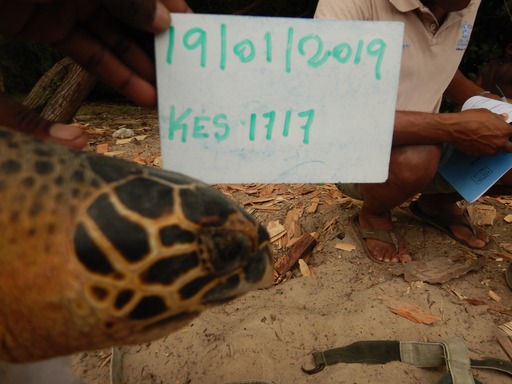 19/01/2019
KES 1717